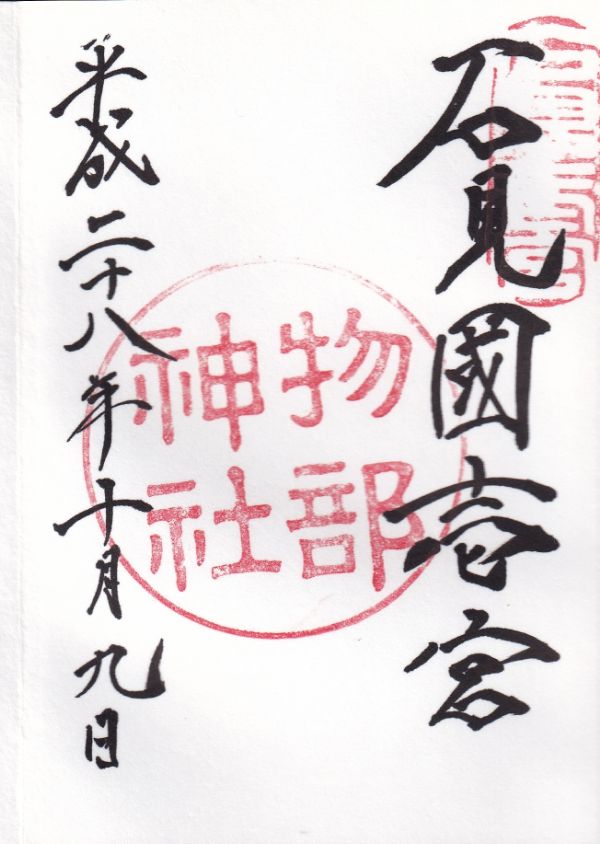 石見國壱宮
物部
神社
平成二十八年十月九日